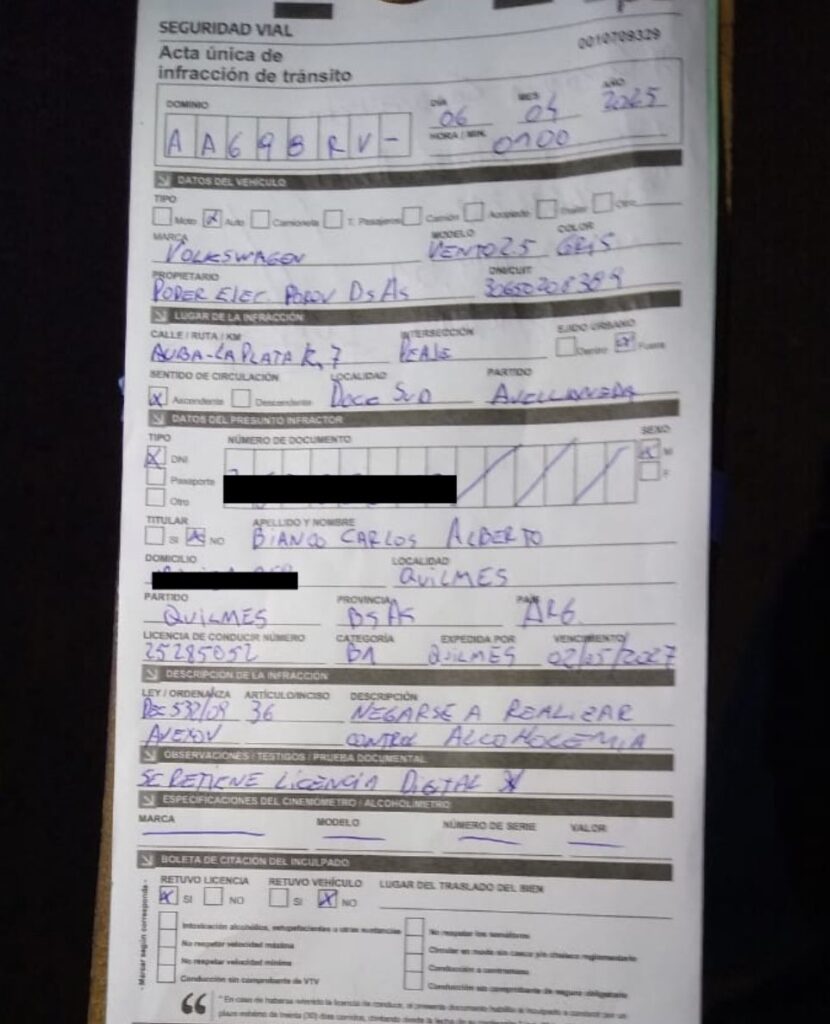 SEGURIDAD VIAL
0010709329
Acta única de
infracción de tránsito
DOMINIO DÍA MES AÑO
06 04 2025
AA698RV-
HORA / MIN. 0100
DATOS DEL VEHÍCULO
TIPO
Moto X Auto Camioneta T. Pasajeros Camión Acoplado Otro
MARCA MODELO COLOR
VOLKSWAGEN VENTO 2.5 GRIS
PROPIETARIO DNI/CUIT
PODER ELEC. BsAs
LUGAR DE LA INFRACCIÓN
CALLE / RUTA / KM INTERSECCIÓN EJIDO URBANO
AUBA-LA PLATA K, 7 PEAJE Dentro X Fuera
SENTIDO DE CIRCULACIÓN LOCALIDAD PARTIDO
X Ascendente Descendente DOCK SUD AVELLANEDA
DATOS DEL PRESUNTO INFRACTOR
TIPO NÚMERO DE DOCUMENTO SEXO
X DNI X M
Pasaporte F
Otro
TITULAR APELLIDO Y NOMBRE
SI X NO BIANCO CARLOS ALBERTO
DOMICILIO LOCALIDAD
QUILMES
PARTIDO PROVINCIA PAÍS
QUILMES BSAS ARG
LICENCIA DE CONDUCIR NÚMERO CATEGORÍA EXPEDIDA POR VENCIMIENTO
25285052 B1 QUILMES 02/05/2027
DESCRIPCIÓN DE LA INFRACCIÓN
LEY / ORDENANZA ARTÍCULO/INCISO DESCRIPCIÓN
DEC 532/09 36 NEGARSE A REALIZAR
ANEXO V CONTROL ALCOHOLEMIA
OBSERVACIONES / TESTIGOS / PRUEBA DOCUMENTAL
SE RETIENE LICENCIA DIGITAL
ESPECIFICACIONES DEL CINEMÓMETRO / ALCOHOLÍMETRO
MARCA MODELO NÚMERO DE SERIE VALOR
BOLETA DE CITACIÓN DEL INCULPADO
RETUVO LICENCIA RETUVO VEHÍCULO LUGAR DEL TRASLADO DEL BIEN
X SI NO SI X NO
- Marcar según corresponda -
Intoxicación alcohólica, estupefacientes u otras sustancias No respetar los semáforos
No respetar velocidad máxima Circular en moto sin casco y/o chaleco reglamentario
No respetar velocidad mínima Conducción a contramano
Conducción sin comprobante de VTV Conducción sin comprobante de seguro obligatorio
" En caso de haberse retenido la licencia de conducir, el presente documento habilita al inculpado a conducir por un
plazo máximo de treinta (30) días corridos, contando desde la fecha de su